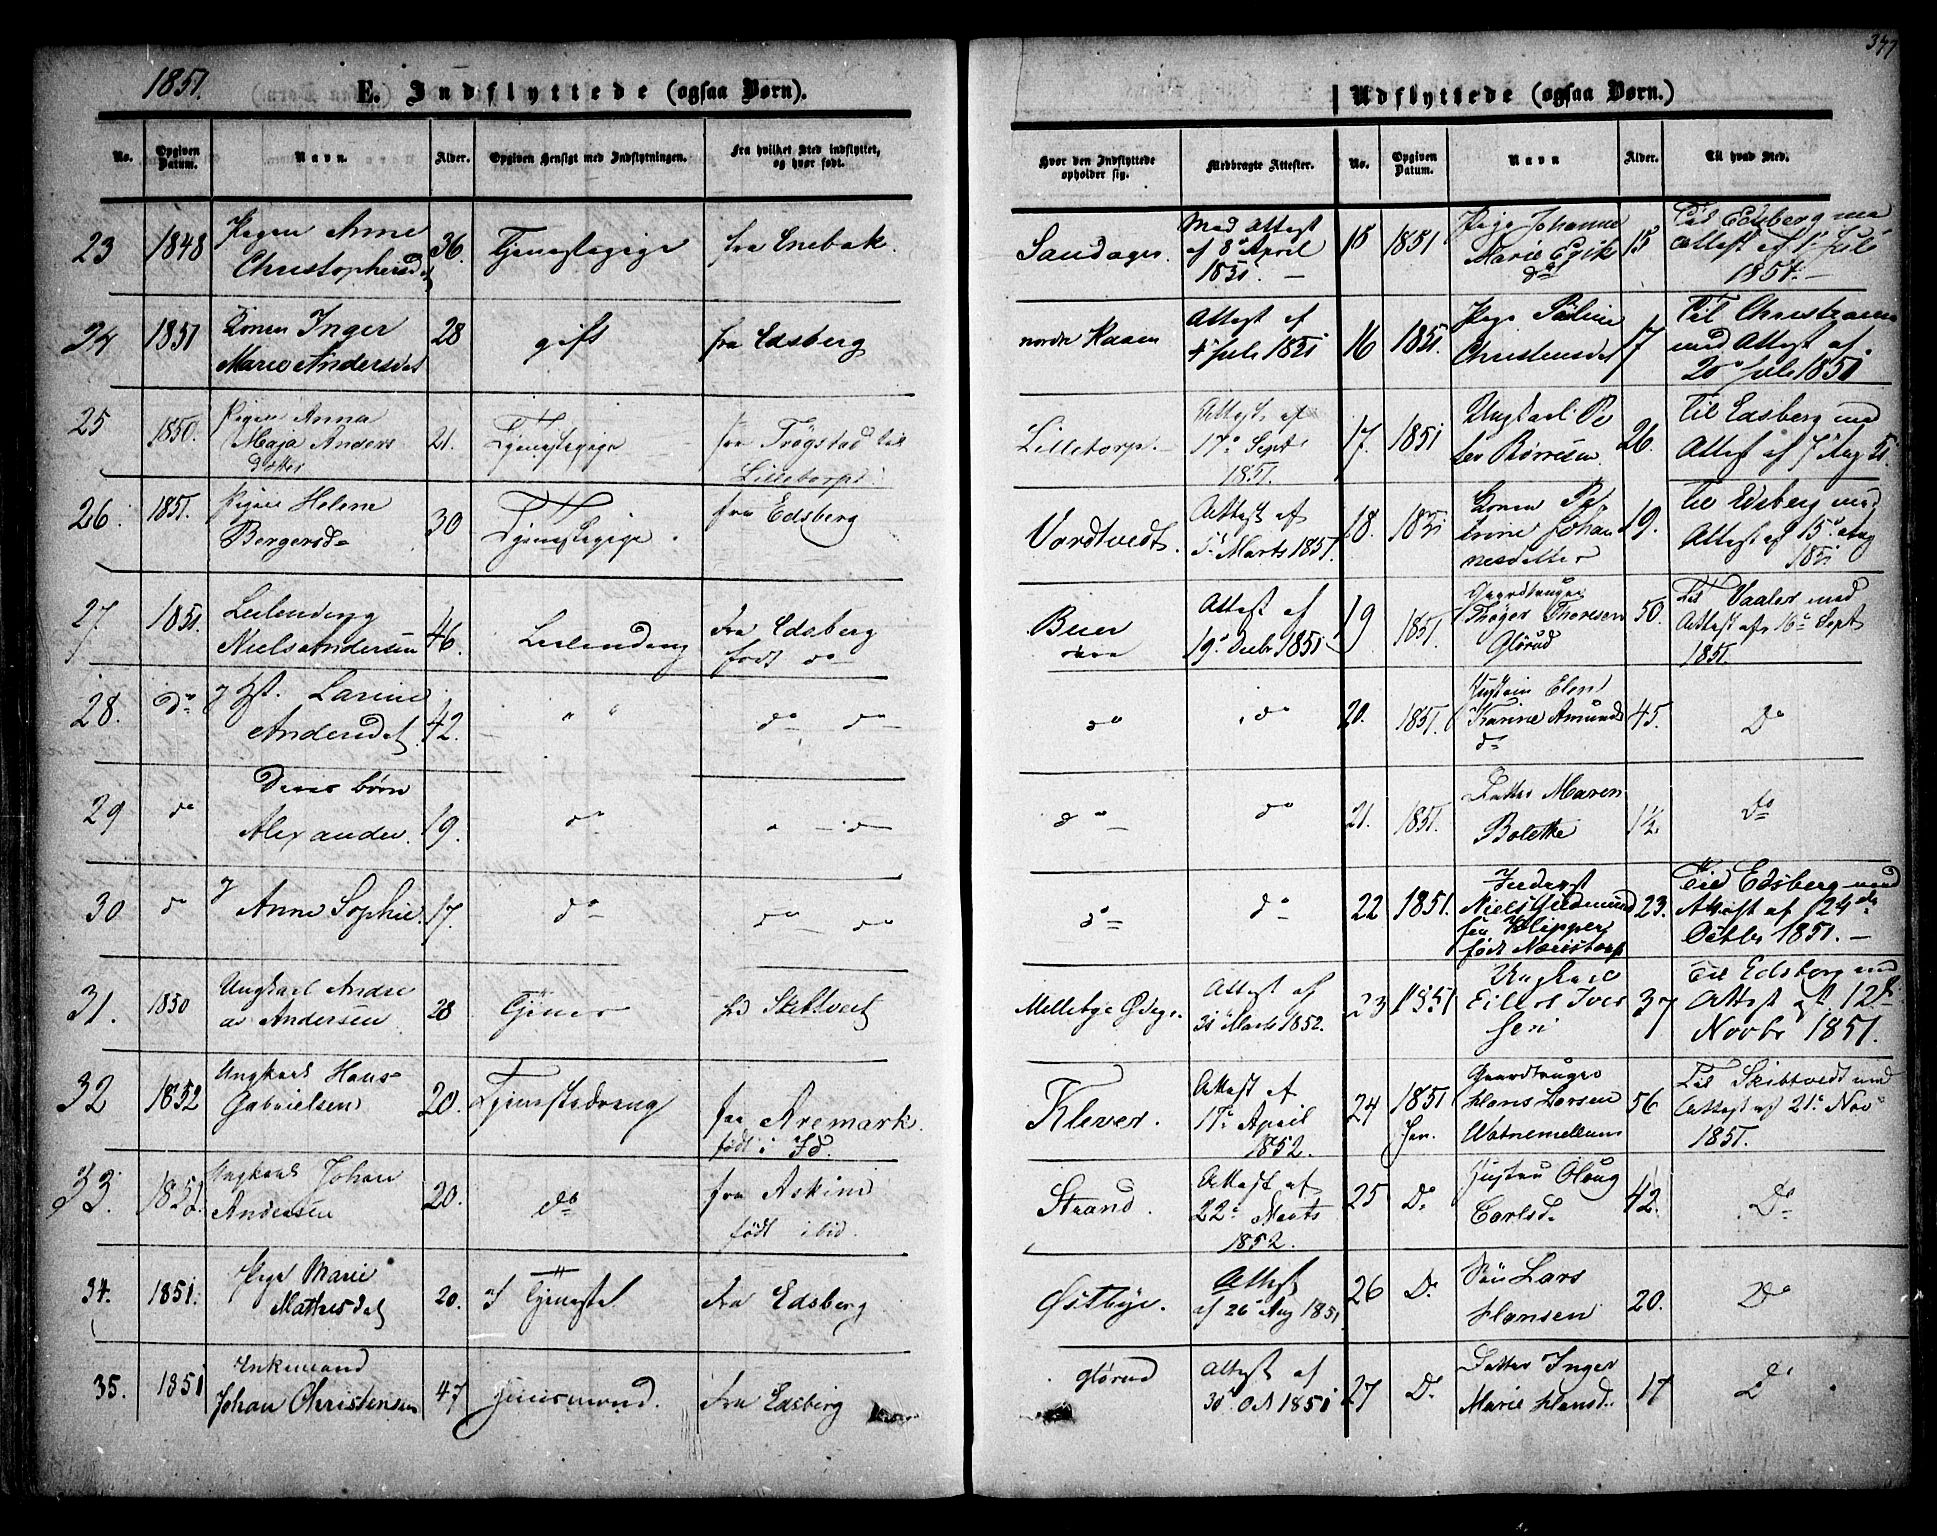 1851.
E. Indflyttede (ogsaa Børn).
No.
Opgiven Datum.
Navn.
Alder.
Opgiven Hensigt med Indflytningen.
Fra hvilket Sted indflyttet, og hvor født.
23 1848 Pigen Anne 36. Tjenestepige fra Enebak.
Christophersd
24 1851 Konen Inger 28 gift fra Edsberg
Marie Andersdat
25 1850. Pigen Anna 21. Tjenestepige fra Trøgstad til
Maja Anders
datter Lilletorp
26. 1851. Pigen Helene 30 Tjenestepige. fra Edsberg
Bergersd
27 1851. Leilending 46. Leilending fra Edsberg
Niels Andersen født do
28. do Larine 42. " " do do
Andersdat
29 do Deres børn
Alexander. 19. do " do
30 do Anne Sophie 17. do do do
31. 1850 Ungkarl Andre 28 Tjener fra Skibtvedt
as Andersen
32 1852 Ungkarl Hans 20. Tjenestedreng fra Aremark.
Gabrielsen født i Id.
33. 1852 Ungkarl Johan 20. do fra Askim
Andersen født ibid.
34. 1851. Pige Marie 20. Tjeneste fra Edsberg
Mathisdat
35. 1851 Enkemand 47 Huusmand. fra Edsberg
Johan Christensen
347
Udflyttede (ogsaa Børn.)
Hvor den Indflyttede opholder sig.
Medbragte Attester.
No.
Opgiven Datum.
Navn
Alder.
Til hvad Sted.
Sandager. Med Attest 15 1851 Pige Johanne 15 Til Edsberg med
af 8 April Marie Attest af Juli
1851. 1851.
nordre Kaasen Attest af 16 1851. Pige Pauline 17 Til Christiania
Juli 1851 Christensdat med Attest af
20 Juli 1851
Lilletorp. Attest af 17. 1851 Ungkarl Pe 26. Til Edsberg med
17. Sept ter Børresen Attest af 7 Aug 51.
1851.
Vardtvedt. Attest af 18. 1851 Konen Pe 19. Til Edsberg med
5. Marts 1851. trine Johan Attest af 15. Aug
nesdatter 1851
Buer Attest af 19 1851. Gaardbruger 50. Til Vaaler med
19. Decbr 1851 Thoresen Attest af 16. Sept
Glørud 1851.
do do 20. 1851. Hustruen Eleni 45. Do
Karine Amunds
d
do do 21. 1851. Datter Maren 1½ Do
Bolette
do do 22 1851. Inderst 23. Til Edsberg med
Niels Gudmund Attest af 24de
sen Klipper, Octbr 1851.
født Næristorp
Mellebye Ødeg. Attest af 23 1851 Ungkarl 37 Til Edsberg med
31 Marts 1852. Eilert Iver Attest af 12
sen Novbr 1851.
Klever. Attest af 24 1851 Gaardbruger 56 Til Skibtvedt med
17. April Jan. Hans Larsen Attest af 21. Nov
1852. Watnemellum 1851.
Strand. Attest af 25 Do Hustru Olaug 42. Do
22. Marts Carlsd.
1852.
Østbye. Attest 26 Do Søn Lars 20. Do
af 26 Aug 1851 Hansen
Glørud Attest af 27 Do Datter Inger 17 Do
30. Oct 1851 Marie Hansd.